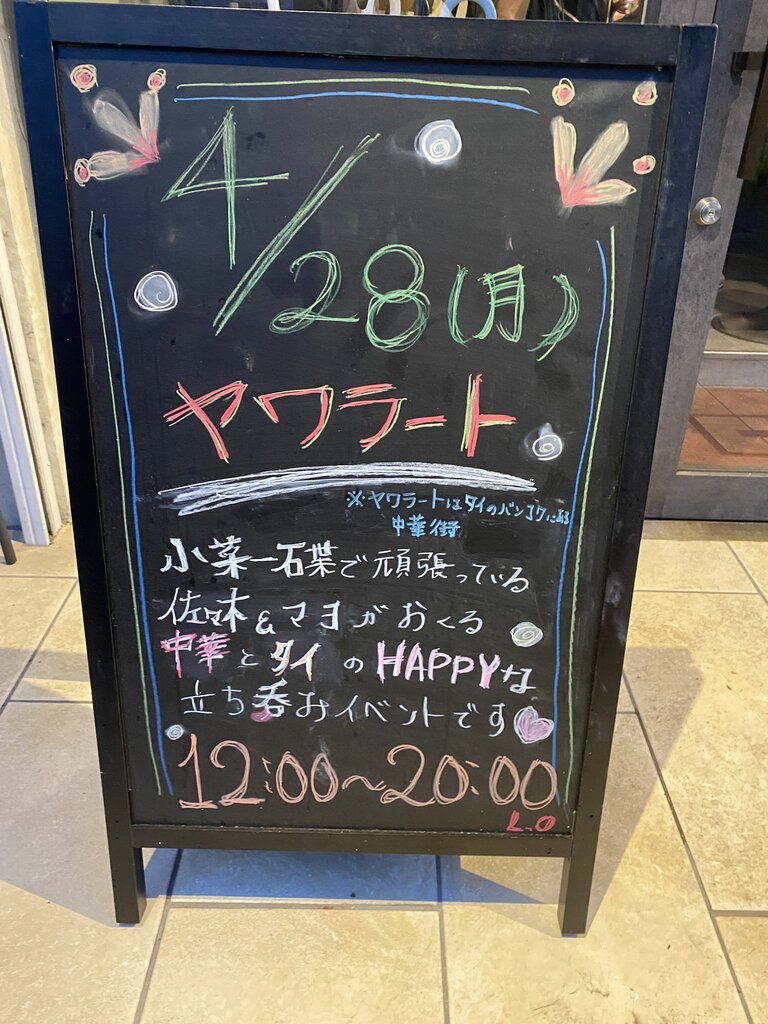 4/28(月)
ヤワラート
※ヤワラートはタイのバンコクにある
中華街
小菜一石葉で頑張っている
佐々木&マヨがおくる
中華とタイのHAPPYな
立ち呑みイベントです
12:00〜20:00
L.O